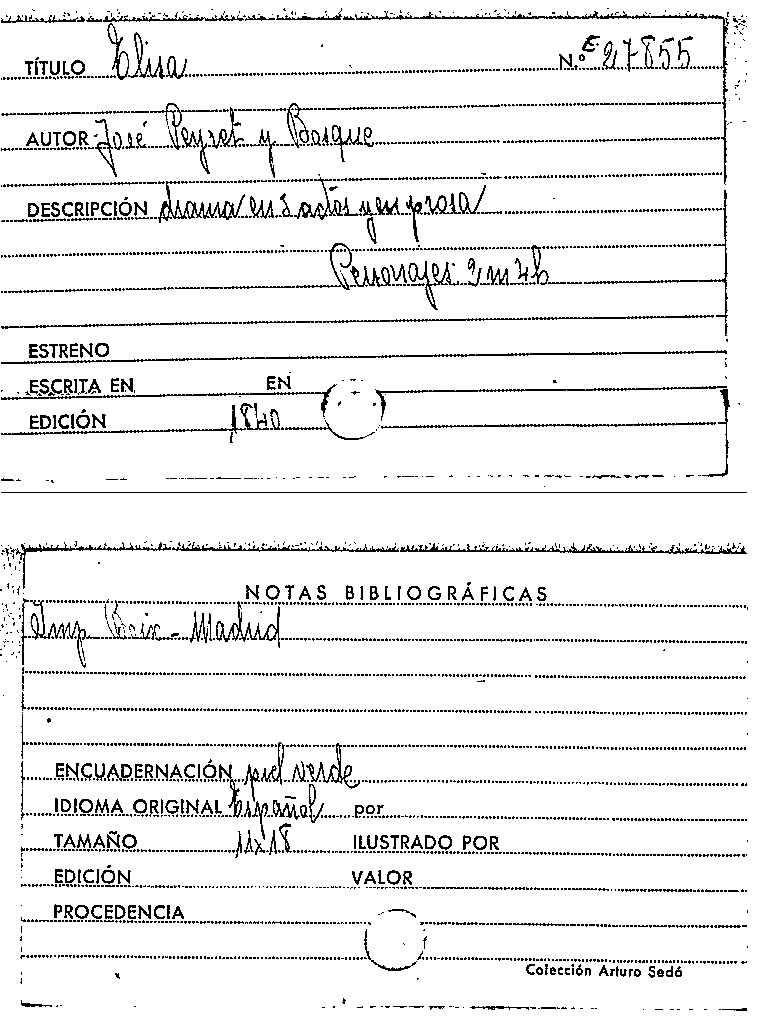 TÍTULO Elisa N.º E-27855
AUTOR José Peyret y Bosque
DESCRIPCIÓN drama en 3 actos y en prosa
Personajes: 2 m 4 h
ESTRENO
ESCRITA EN EN
EDICIÓN 1840
NOTAS BIBLIOGRÁFICAS
Imp. Boix - Madrid
ENCUADERNACIÓN piel verde
IDIOMA ORIGINAL Español por
TAMAÑO 11x18 ILUSTRADO POR
EDICIÓN VALOR
PROCEDENCIA
Colección Arturo Sedó